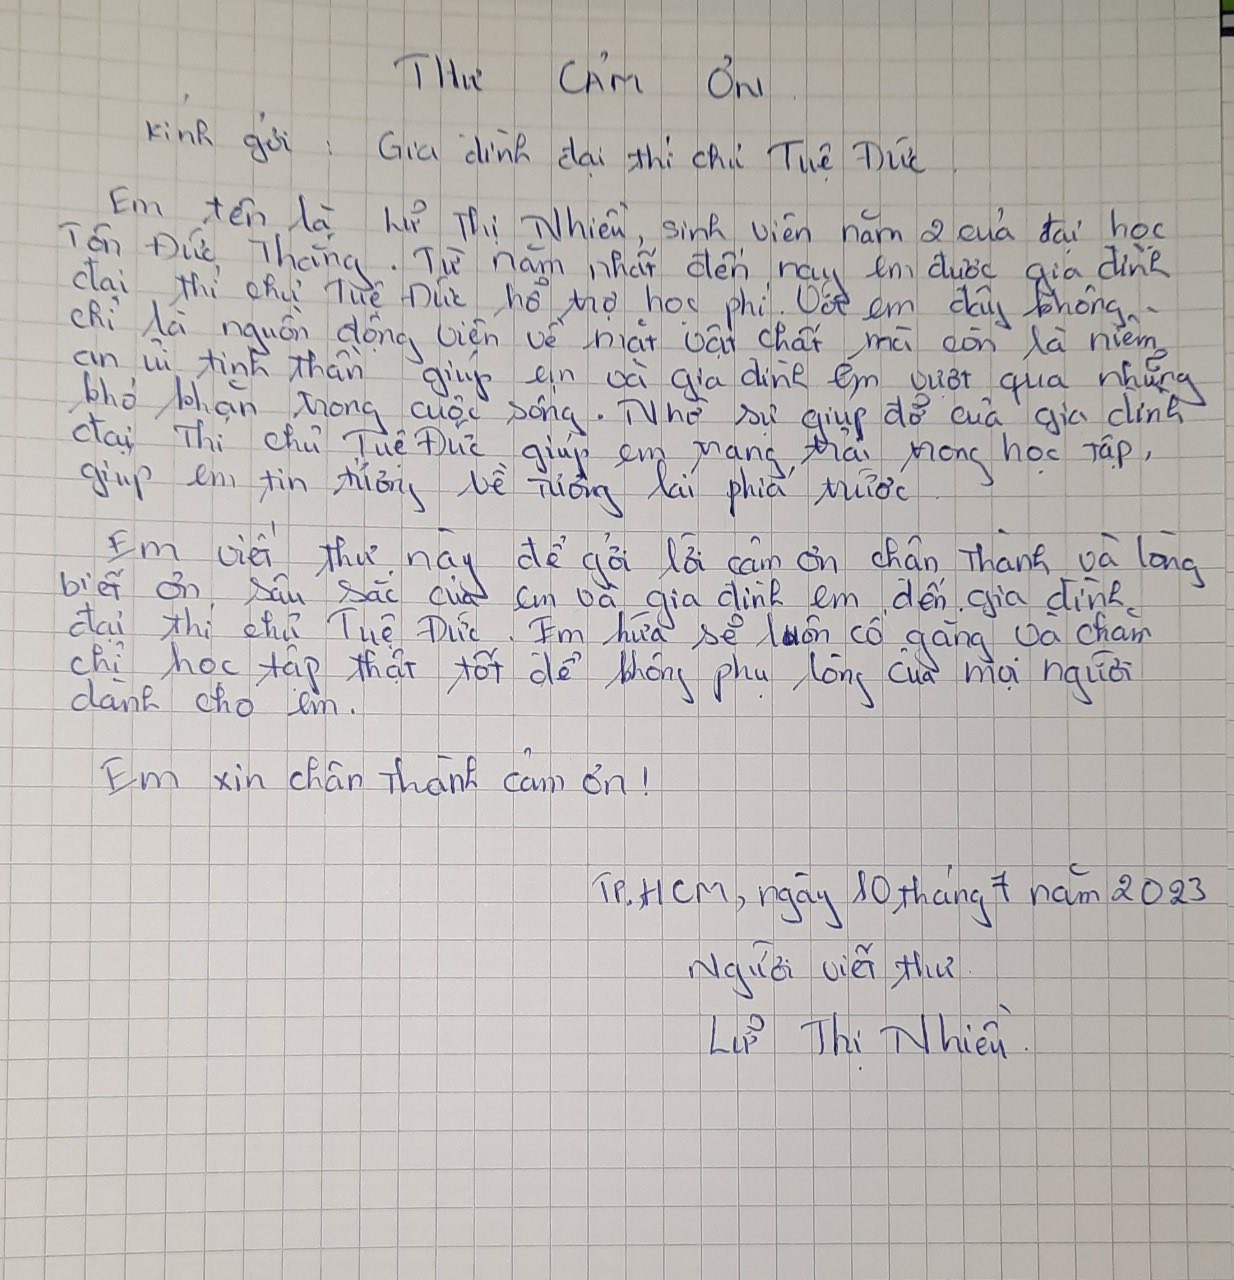 THƯ CẢM ƠN
Kính gửi : Gia đình đại thí chủ Tuệ Đức.
Em tên là Lử Thị Nhiều, sinh viên năm 2 của đại học
Tôn Đức Thắng. Từ năm nhất đến nay em được gia đình
đại thí chủ Tuệ Đức hỗ trợ học phí. Với em đây không
chỉ là nguồn động viên về mặt vật chất mà còn là niềm
an ủi tinh thần giúp em và gia đình em vượt qua những
khó khăn trong cuộc sống. Nhờ sự giúp đỡ của gia đình
đại Thí chủ Tuệ Đức giúp em trang trải trong học tập,
giúp em tin tưởng về tương lai phía trước
Em viết thư này để gởi lời cảm ơn chân thành và lòng
biết ơn sâu sắc của em và gia đình em đến gia đình
đại thí chủ Tuệ Đức. Em hứa sẽ luôn cố gắng và chăm
chỉ học tập thật tốt để không phụ lòng của mọi người
dành cho em.
Em xin chân thành cảm ơn!
TP.HCM, ngày 10 tháng 7 năm 2023
Người viết thư
Lử Thị Nhiều.